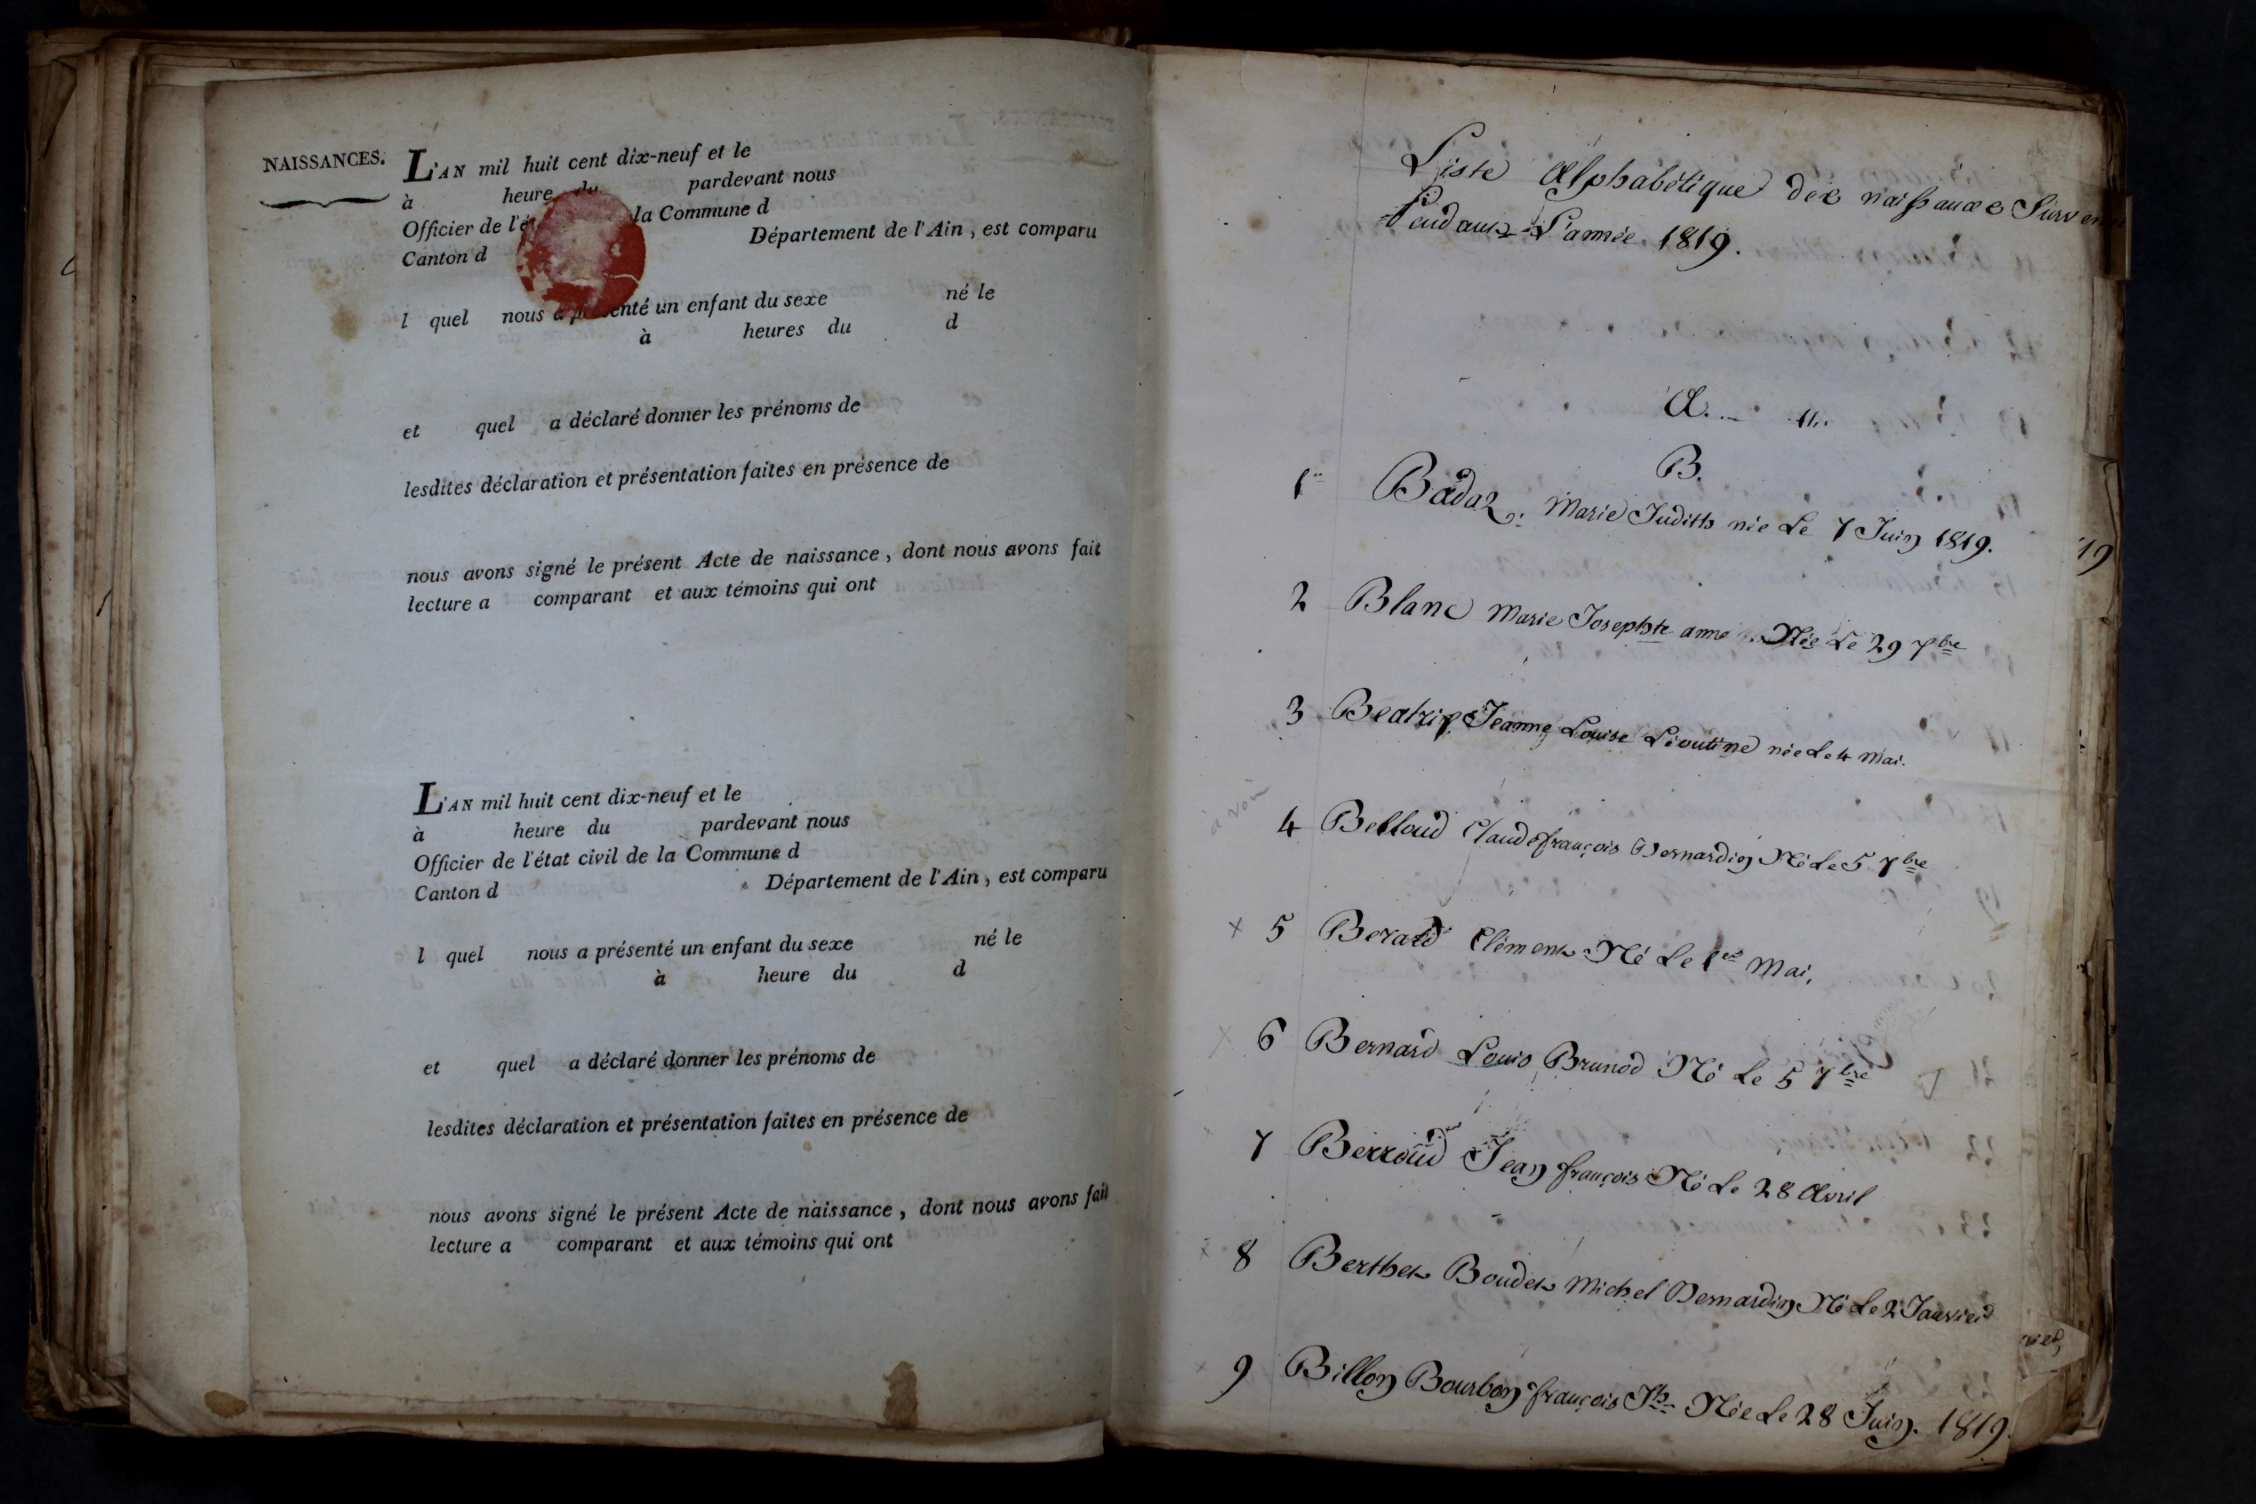 NAISSANCES.
L'AN mil huit cent dix-neuf et le
à heure du pardevant nous
Officier de l'é la Commune d
Canton d Département de l'Ain, est comparu
l quel nous a présenté un enfant du sexe né le
à heures du d
et quel a déclaré donner les prénoms de
lesdites déclaration et présentation faites en présence de
nous avons signé le présent Acte de naissance, dont nous avons fait
lecture a comparant et aux témoins qui ont
L'AN mil huit cent dix-neuf et le
à heure du pardevant nous
Officier de l'état civil de la Commune d
Canton d Département de l'Ain, est comparu
l quel nous a présenté un enfant du sexe né le
à heure du d
et quel a déclaré donner les prénoms de
lesdites déclaration et présentation faites en présence de
nous avons signé le présent Acte de naissance, dont nous avons fait
lecture a comparant et aux témoins qui ont
Liste Alphabétique des naissances Surven
Pendant L'année 1819.
A.
B.
1er Badaz, Marie Judith née Le 7 Juin 1819.
2 Blanc Marie Josephte anne Née Le 29 7bre
3 Beatrix Jeanne Louise Léontine née Le 4 Mai.
à voir
4 Belloud Claude françois Bernardin Né Le 5 7bre
x 5 Berard Clément Né Le 1er Mai,
x 6 Bernard Louis Brunod Né Le 5 7bre
7 Berroud Jean françois Né Le 28 Avril
x 8 Berthet Boudet Michel Bernardin Né Le 2 Janvier
x 9 Billon Bourbon françois Jh Née Le 28 Juin. 1819.
19